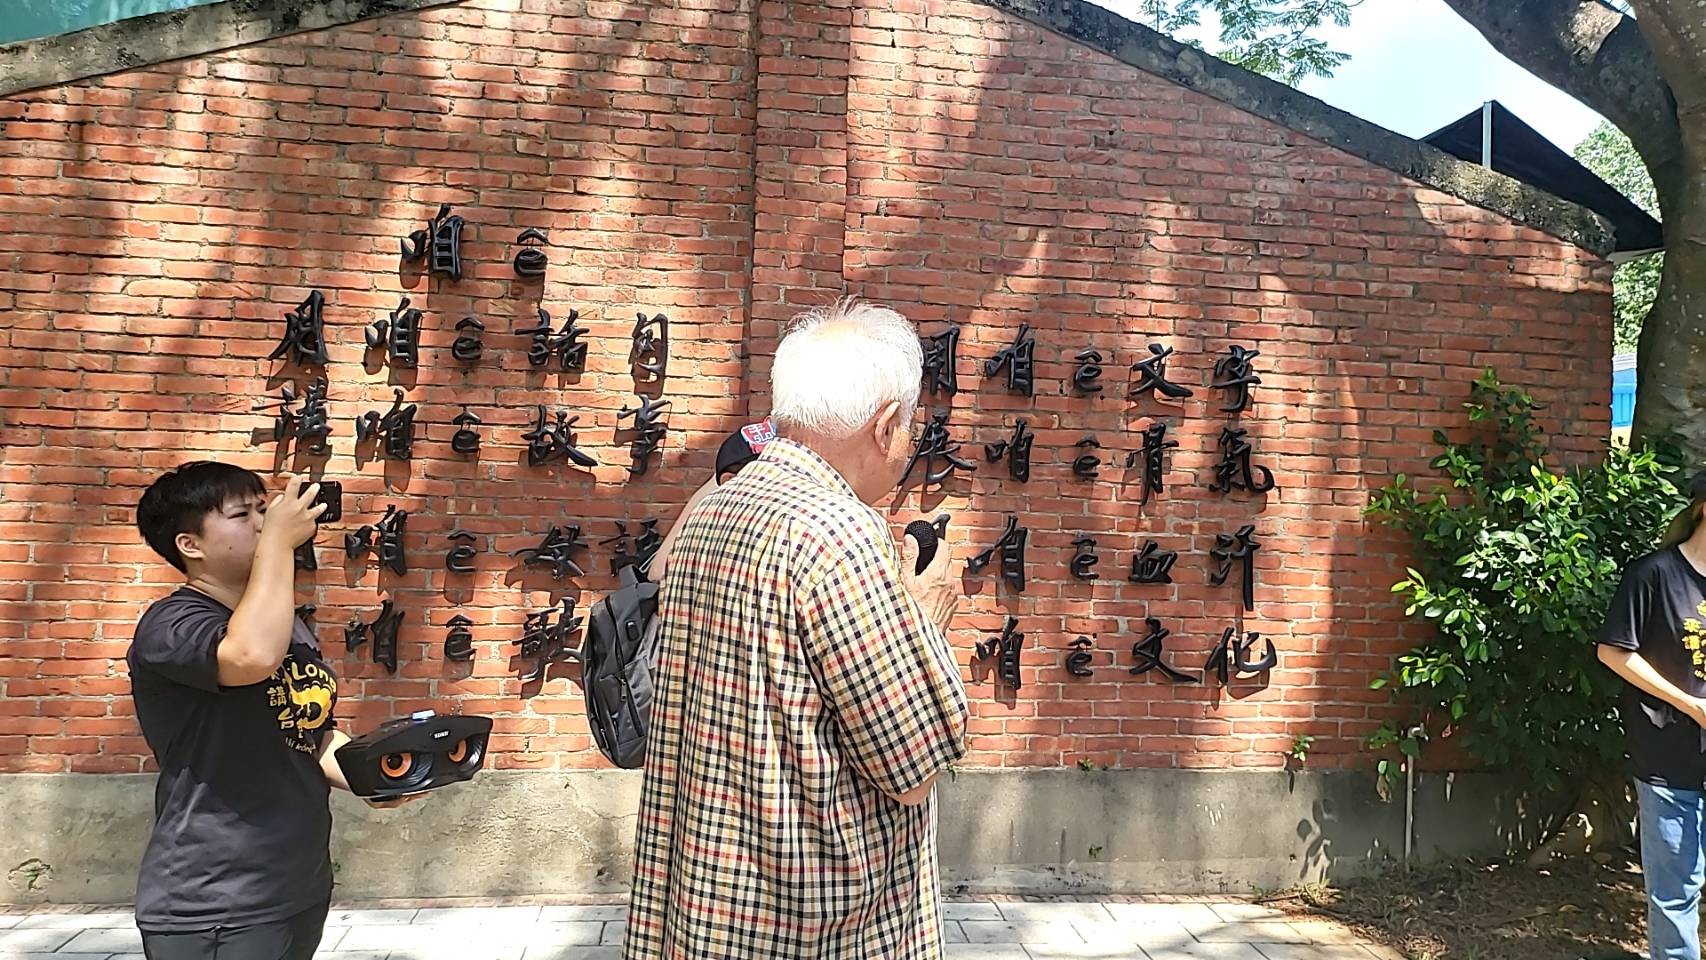 咱ê
用咱ê話句
講咱ê故事
咱ê母語
咱ê歌
用咱ê文字
展咱ê骨氣
咱ê血汗
咱ê文化
Long
講
台